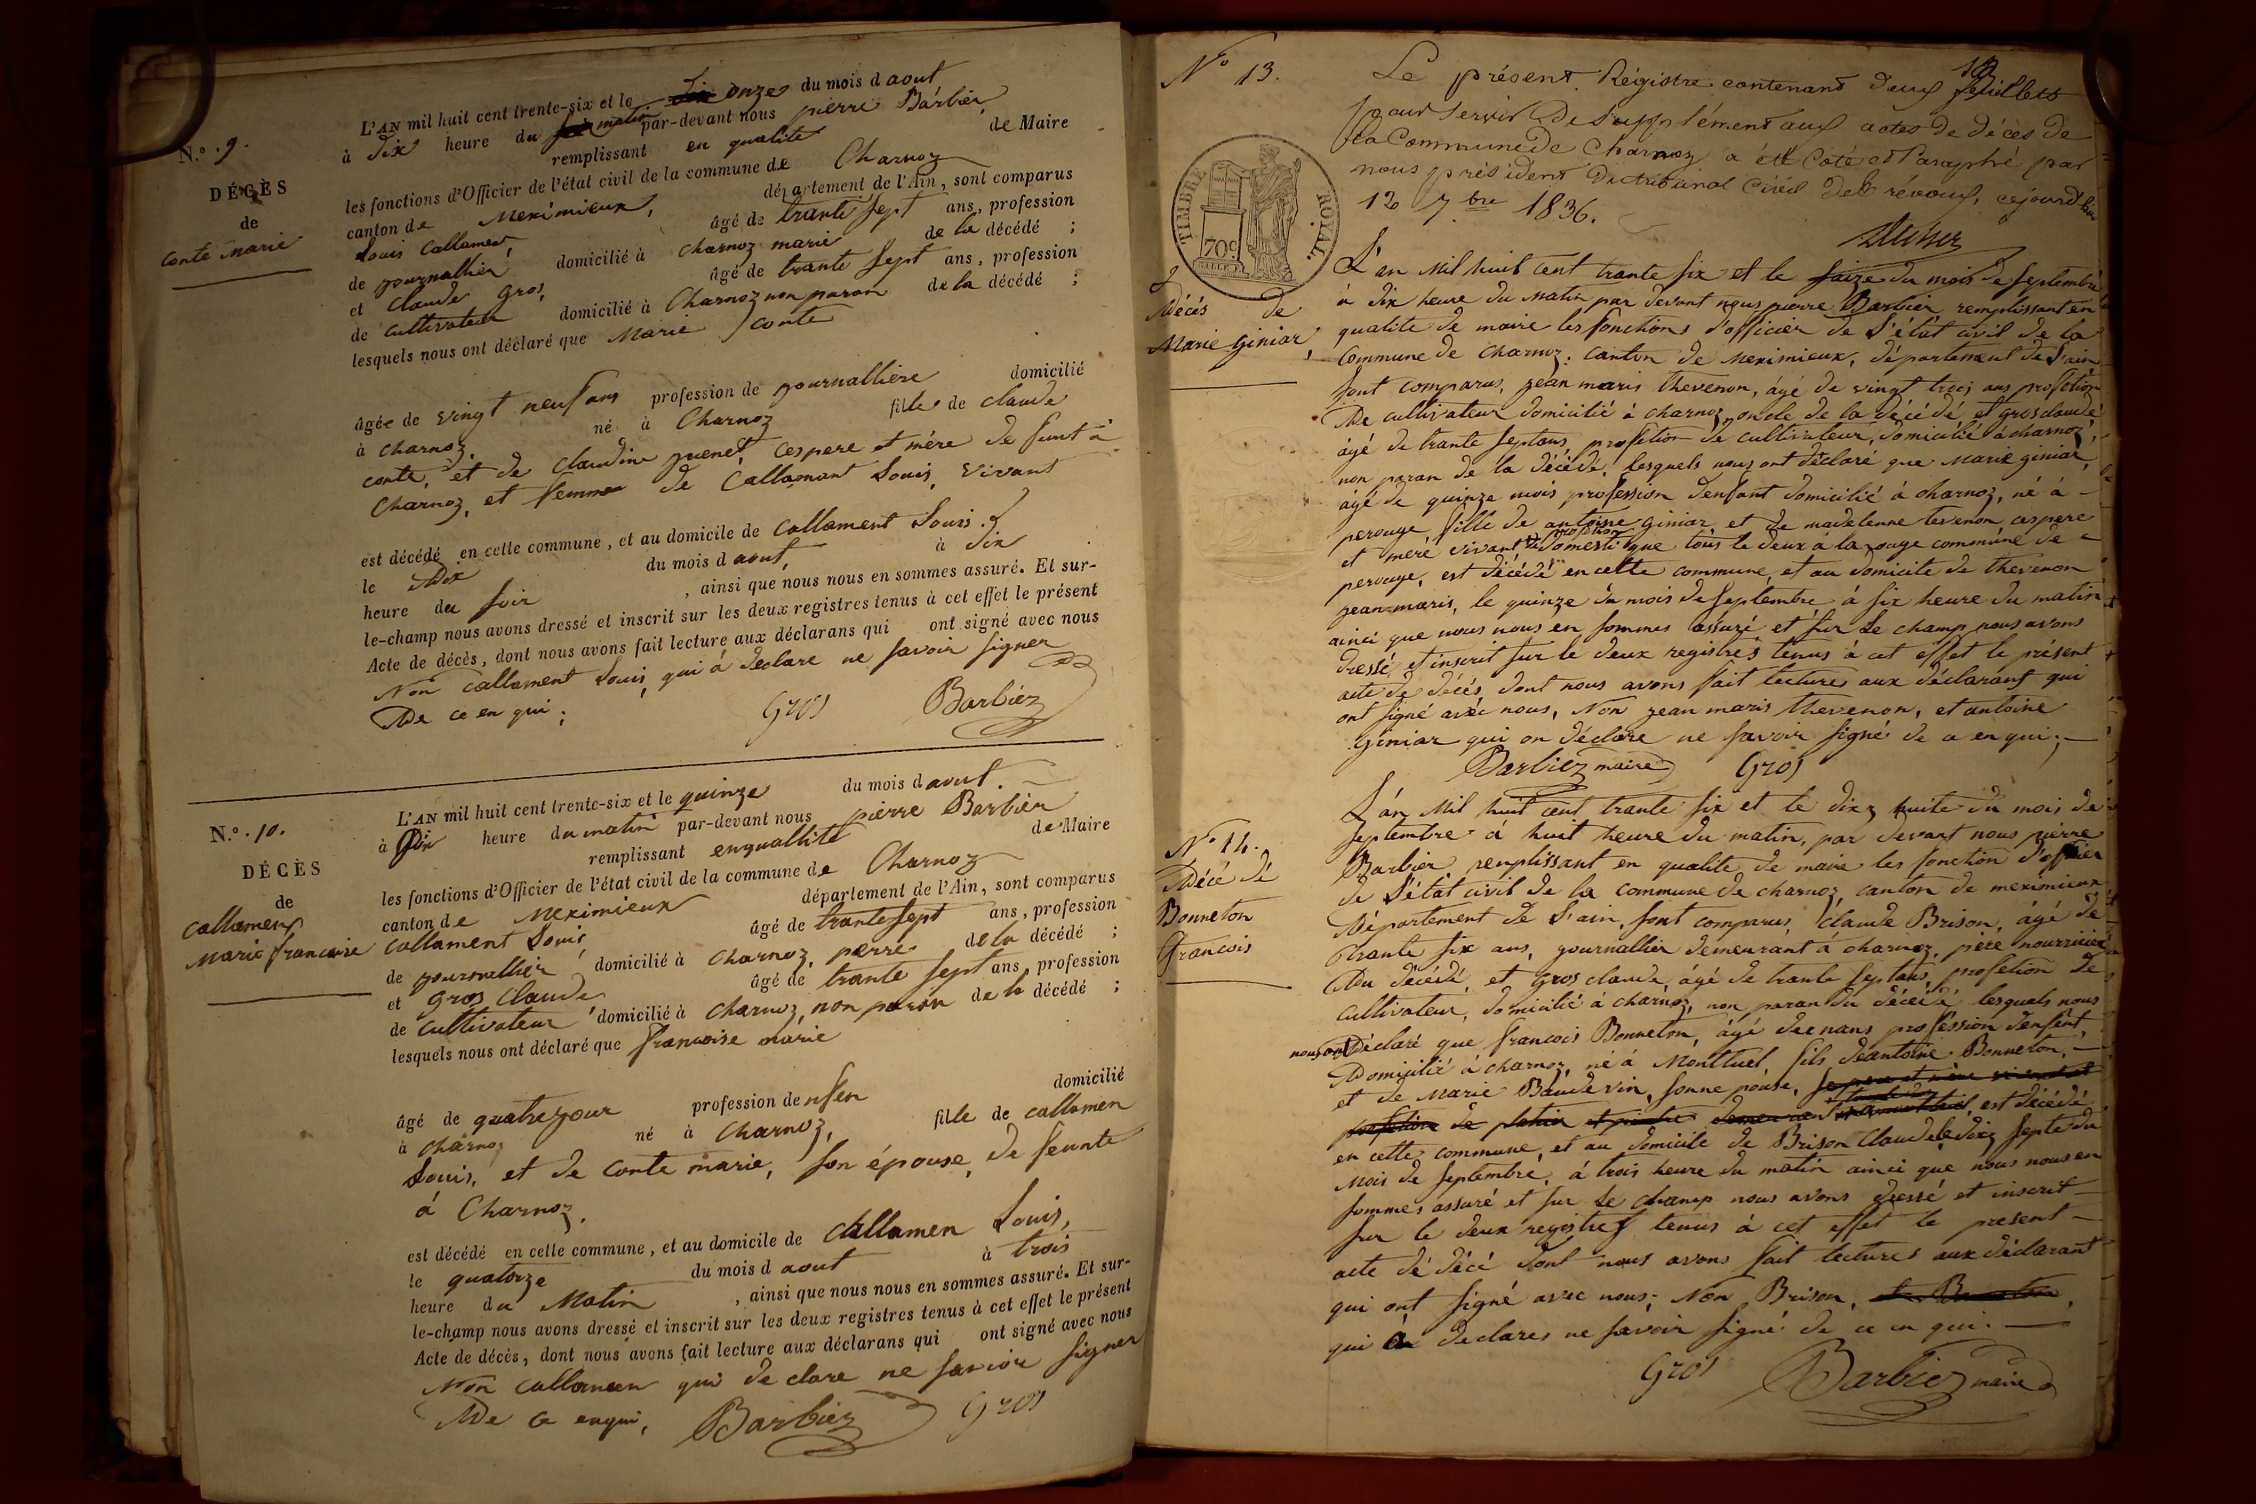 N.º 9.
DÉCÈS
de
Conte Marie
L'AN mil huit cent trente-six et le onze du mois d aout
à dix heure du matin par-devant nous pierre Barbier
remplissant en qualité de Maire
les fonctions d'Officier de l'état civil de la commune de Charnoz
canton de Meximieux, département de l'Ain, sont comparus
Louis Callamen, âgé de trante sept ans, profession
de journallier domicilié à Charnoz marie de la décédé ;
et Claude Gros, âgé de trante sept ans, profession
de Cultivateur domicilié à Charnoz non paran de la décédé ;
lesquels nous ont déclaré que Marie conte
âgée de vingt neuf ans profession de journallière domicilié
à charnoz, né à Charnoz fille de claude
conte, et de claudine guenet, ces pere et mére de funt à
Charnoz, et femme de Callamant Louis, vivant
est décédé en cette commune, et au domicile de Callament Louis.
le Dix du mois d aout, à dix
heure du soir , ainsi que nous nous en sommes assuré. Et sur-
le-champ nous avons dressé et inscrit sur les deux registres tenus à cet effet le présent
Acte de décès, dont nous avons fait lecture aux déclarans qui ont signé avec nous
Non Callament Louis, qui à declare ne savoir signer
De ce en qui ;
Gros Barbiez
N.º 10.
DÉCÈS
de
Callamens
Marie francoise
L'AN mil huit cent trente-six et le quinze du mois d aout
à Dix heure du matin par-devant nous pierre Barbier
remplissant enquallité de Maire
les fonctions d'Officier de l'état civil de la commune de Charnoz
canton de Meximieux département de l'Ain, sont comparus
Callament Louis, âgé de trante sept ans, profession
de journallier domicilié à charnoz, perre de la décédé ;
et Gros Claude âgé de trante sept ans, profession
de Cultivateur domicilié à Charnoz, non paran de la décédé ;
lesquels nous ont déclaré que francoise marie
âgé de quatre jour profession de nfen domicilié
à charnoz né à Charnoz, fille de callamen
Louis, et de Conte marie, son épouse, de feunte
á Charnoz.
est décédé en cette commune, et au domicile de Callamen Louis,
le quatorze du mois d aout à trois
heure du Matin , ainsi que nous nous en sommes assuré. Et sur-
le-champ nous avons dressé et inscrit sur les deux registres tenus à cet effet le présent
Acte de décès, dont nous avons fait lecture aux déclarans qui ont signé avec nous
Non Callamen qui de clare ne savoir signer
De Ce enqui, Barbiez Gros
Nº 13.
Le présent Régistre contenant deux feuillets
pour servir De Supplément aux actes de décès de
la Commune de Charnoz a été Coté et Paraphé par
nous président du tribunal Civil de Trévoux, cejourd'hui
12 7bre 1836.
TIMBRE ROYAL
70c.
Décés de
Marie Giniar,
L'an Mil huit cent trante six et le saize du mois de septembre
à dix heure du Matin par devant nous pierre Barbier remplissant en
qualite de maire les fonctions d'officier de l'état civil de la
Commune de Charnoz, Canton de Meximieux, département de l'ain
sont comparus, jean maris thevenon, ágé de vingt trois ans profetion
De cultivateur domicilié à charnoz, oncle de la décédé et gros claude
ágé de trante sept ans, profetion de cultivateur, domicilié à charnoz,
non paran de la décédé, lesquels nous ont déclaré que Marie giniar,
ágé de quinze mois, profession denfant domicilié à charnoz, né à
perouge fille de antoine giniar, et de madelenne tevenon, ces pere
et meré vivant profetion de domestique tous le deux à la commune de
perouge, est décédé en cette commune, et au domicile de thevenon
jean-maris, le quinze du mois de Septembre à six heure du matin
ainci que nous nous en sommes assuré et sur le champ nous avons
dressé et inscrit sur le deux registres tenus à cet effet le présent
acte de décés, dont nous avons fait lectures aux déclarans qui
ont signé avec nous, Non jean maris thevenon, et antoine
Giniar qui on déclare ne savoir signé de ce en qui ;
Barbiez maire Gros
Nº 14.
Décé de
Bonneton
francois
L'an Mil huit cent trante six et le dix huite du mois de
Septembre à huit heure du matin, par devant nous pierre
Barbier remplissant en qualite de maire les fonction d'officier
de l'état civil de la commune de charnoz, canton de meximieux
Département de l'ain, sont comparus, Claude Brison, ágé de
trante six ans, journallier demeurant à charnoz, pere nourricier
Du décédé, et Gros claude, ágé de trante sept ans, profetion de
cultivateur, domicilié à charnoz, non paran du décédé lesquels nous
nous ont Déclaré que francois Bonneton, ágé de enans profession denfent,
Domicilié à charnoz, né à Montluel, fils de antoine Bonneton,
et de Marie Baudevin, sonne pouse, se pere et mère vivant
profetion de platrier demeurant à montluel, est décédé
en cette commune, et au domicile de Brison Claude le dix septe du
Mois de Septembre, á trois heure du matin ainci que nous nous en
sommes assuré et sur le champ nous avons dressé et inscrit
sur le deux registres tenus à cet effet le present
acte de décé dont nous avons fait lectures aux déclarant
qui ont signé avec nous ; Non Brison, et Bonneton,
qui à declares ne savoir signé de ce en qui.
Gros Barbiez maire